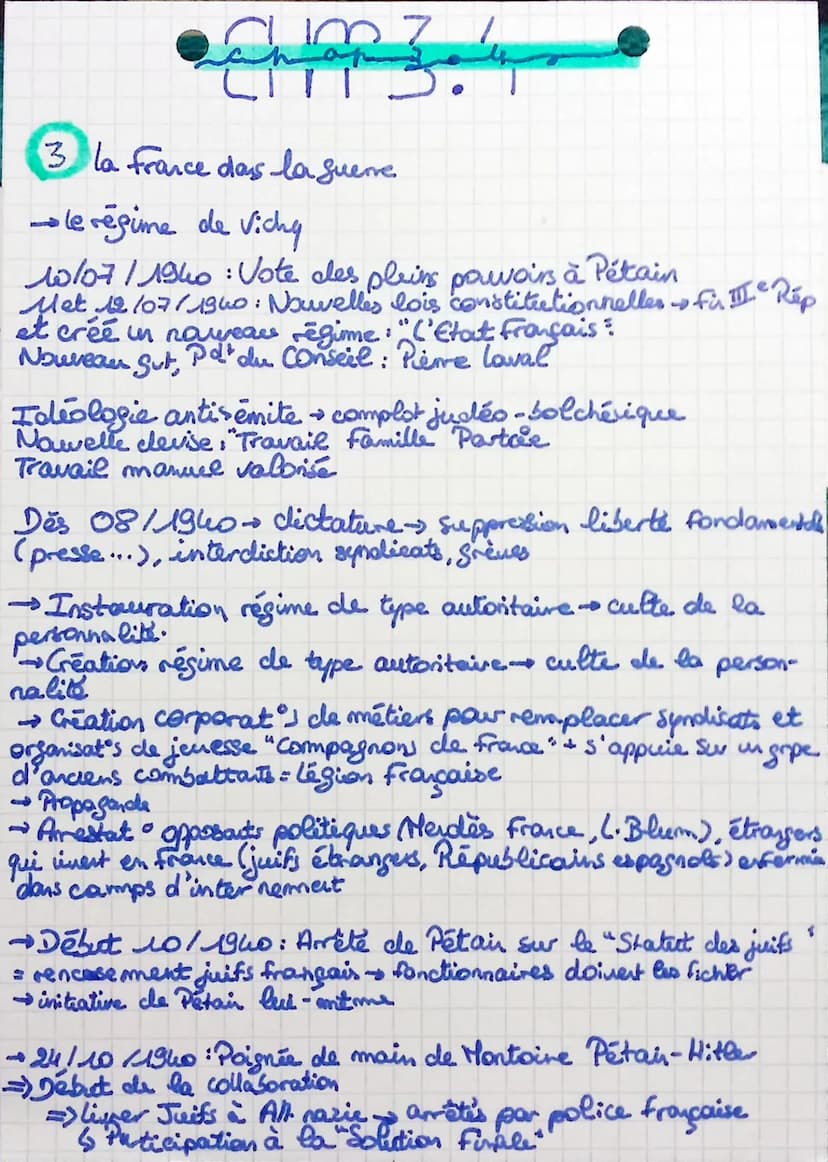 CH 3.4
chap 3.4
3 La France dans la guerre
→ le régime de Vichy
10/07/1940 : Vote des pleins pouvoirs à Pétain
11 et 12/07/1940 : Nouvelles lois constitutionnelles → fin IIIe Rép
et créé un nouveau régime : "L'Etat Français".
Nouveau gvt, Pdt du Conseil : Pierre Laval
Idéologie antisémite → complot judéo-bolchévique
Nouvelle devise : "Travail Famille Partrie
Travail manuel valorisé
Dès 08/1940 → dictature → suppression liberté fondamentale
(presse...), interdiction syndicats, grèves
→ Instauration régime de type autoritaire → culte de la
personnalité.
→ Création régime de type autoritaire → culte de la person-
nalité
→ Création corporat°s de métiers pour remplacer syndicats et
organisat°s de jeunesse "Compagnons de France" + s'appuie sur un grpe
d'anciens combattants = Légion Française
→ Propagande
→ Arrestat° opposants politiques (Mendès France, L. Blum), étrangers
qui vivent en France (juifs étrangers, Républicains espagnols) enfermés
dans camps d'internement
→ Début 10/1940 : Arrêté de Pétain sur le "Statut des juifs"
= recensement juifs français → fonctionnaires doivent les ficher
→ initiative de Pétain lui-même
→ 24/10/1940 : Poignée de main de Montoire Pétain-Hitler
⇒ Début de la collaboration
⇒ Livrer Juifs à All. nazie → arrêtés par police française
↳ Participation à la "Solution Finale"